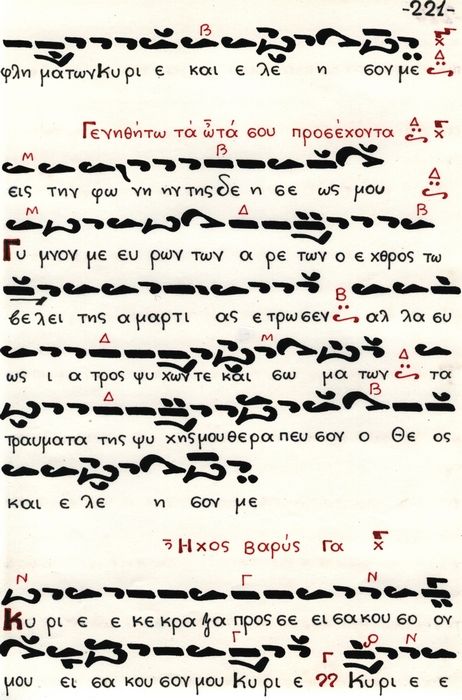 -221-
φλη ματων Κυ ρι ε και ε λε η σον με
Γενηθήτω τὰ ὦτά σου προσέχοντα
εις την φω νη ην της δε η σε ως μου
Γυ μνον με ευ ρων των α ρε των ο ε χθρος τω
βε λει της α μαρτι ας ε τρω σεν αλ λα συ
ως ι α τρος ψυ χων τε και σω μα των τα
τραυματα της ψυ χης μου θερα πευ σον ο Θε ος
και ε λε η σον με
Ἦχος βαρύς Γα
Κυ ρι ε ε κε κρα ξα προς σε ει σα κου σο ον
μου ει σα κου σον μου Κυ ρι ε Κυ ρι ε ε